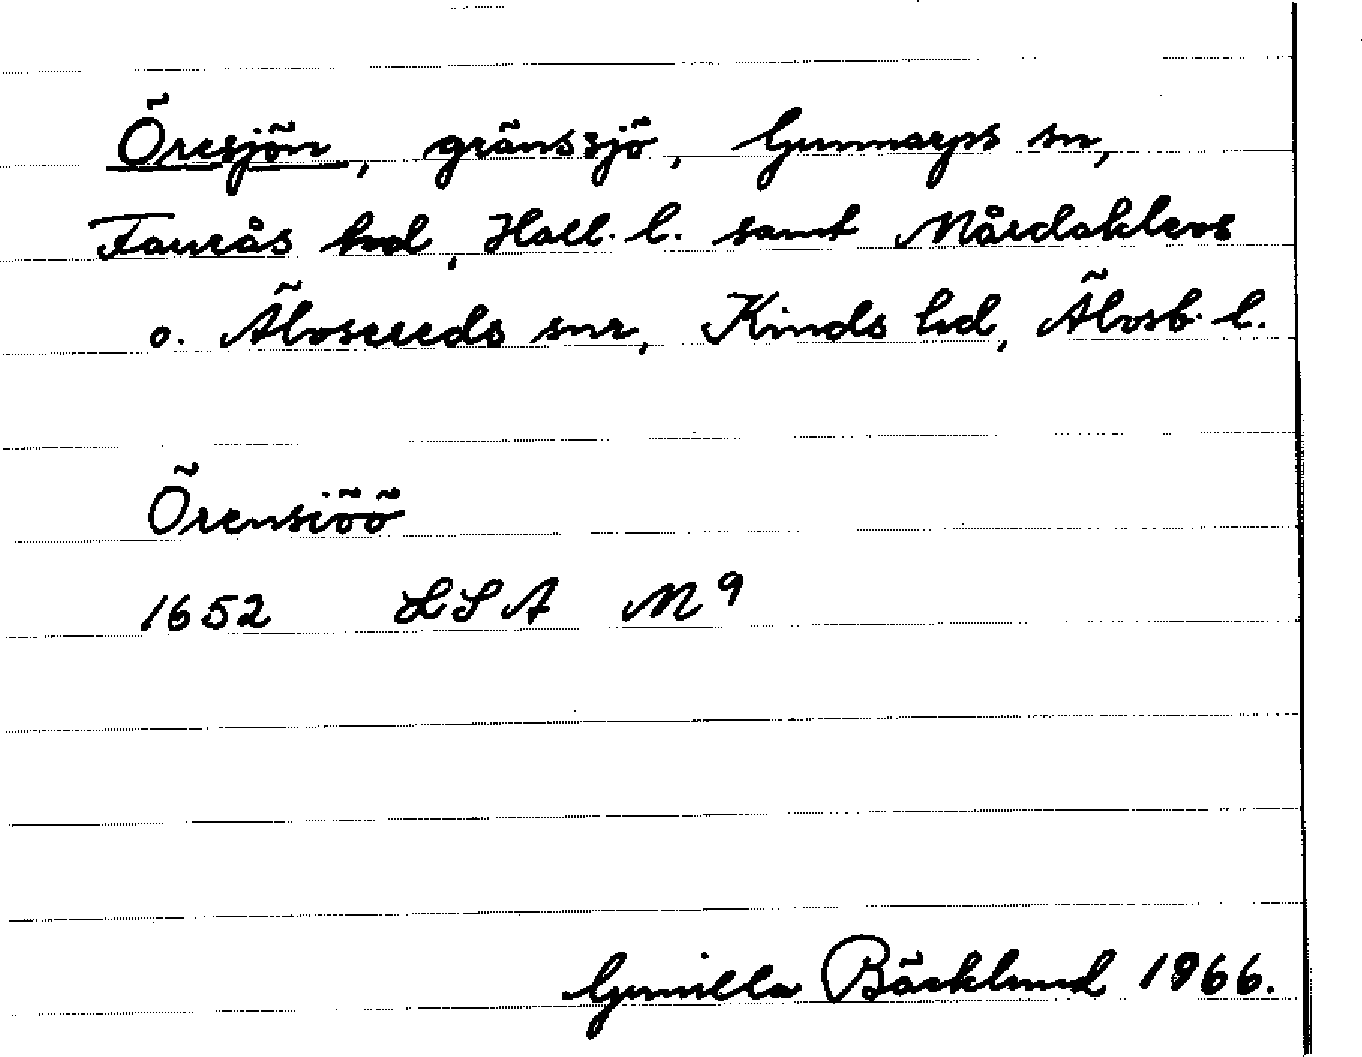 Öresjön, gränssjö, Gunnarps sn,
Faurås hd, Hall. l. samt Mårdaklevs
o. Älvsereds snr, Kinds hd, Älvsb. l.
Örensiöö
1652 LSA M 9
Gunilla Bäcklund 1966.